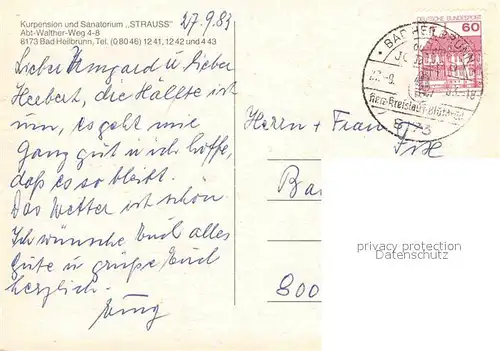 Kurpension und Sanatorium „STRAUSS"
Abt-Walther-Weg 4-8
8173 Bad Heilbrunn, Tel. (0 80 46) 12 41, 12 42 und 4 43
27.9.83
Lieber Irmgard u. lieber
Herbert, die Hälfte ist
um, es geht mir
ganz gut u. ich hoffe,
daß es so bleibt.
Das Wetter ist schön.
Ich wünsche Euch alles
Gute u. grüße Euch
herzlich.
DEUTSCHE BUNDESPOST
60
BAD HEILBRUNN
Herz-Kreislauf-Blutdruck
8173
Herrn + Frau
Ba
800
privacy protection
privacy protection